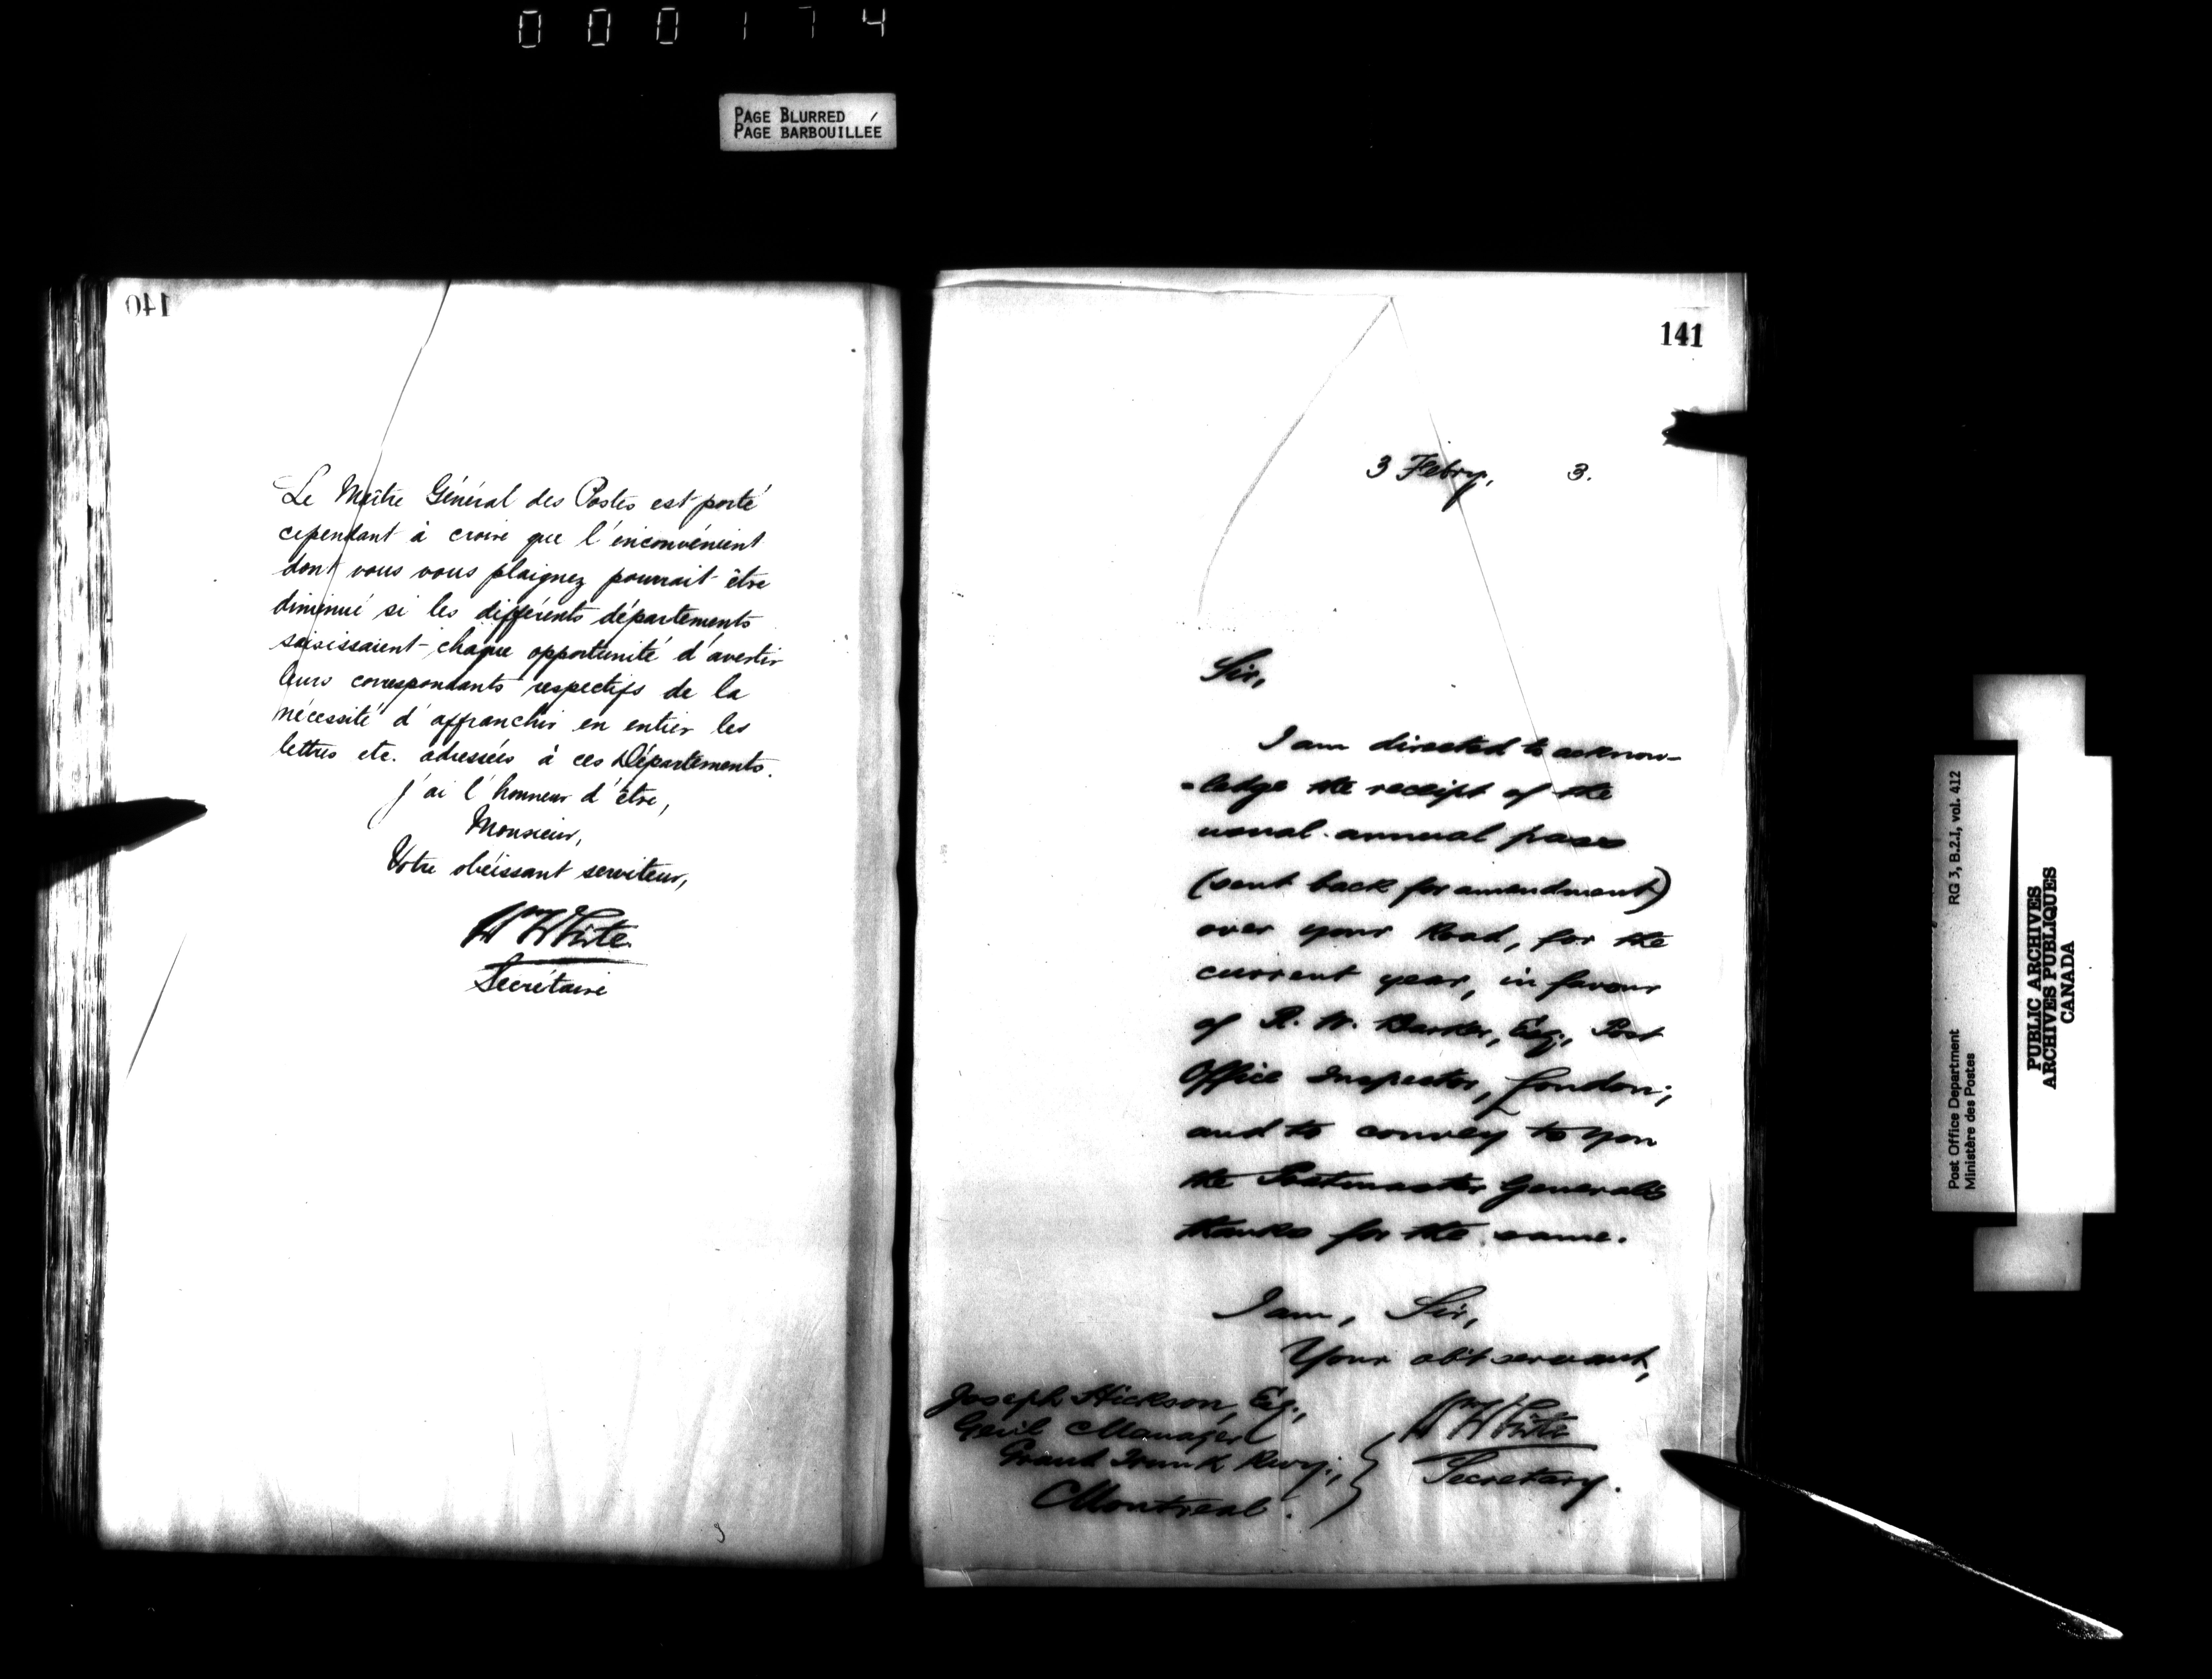 000174
PAGE BLURRED
PAGE BARBOUILLÉE
140
Le Maître Général des Postes est porté
cependant à croire que l'inconvénient
dont vous vous plaignez pourrait être
diminué si les différents départements
saisissaient chaque opportunité d'avertir
leurs correspondants respectifs de la
nécessité d'affranchir en entier les
lettres etc. adressées à ces Départements.
J'ai l'honneur d'être,
Monsieur,
Votre obéissant serviteur,
Wm White
Secrétaire
141
3 Febry, 3.
Sir,
I am directed to acknow-
-ledge the receipt of the
usual annual pass
(sent back for amendment)
over your Road, for the
current year, in favour
of R. W. Barker, Esq., Post
Office Inspector, London;
and to convey to you
the Postmaster General's
thanks for the same.
I am, Sir,
Your obt servant,
Wm White
Secretary.
Joseph Hickson, Esq.,
Genl Manager
Grand Trunk Rwy.,
Montreal.
Post Office Department
Ministère des Postes
RG 3, B.2.I, vol. 412
PUBLIC ARCHIVES
ARCHIVES PUBLIQUES
CANADA